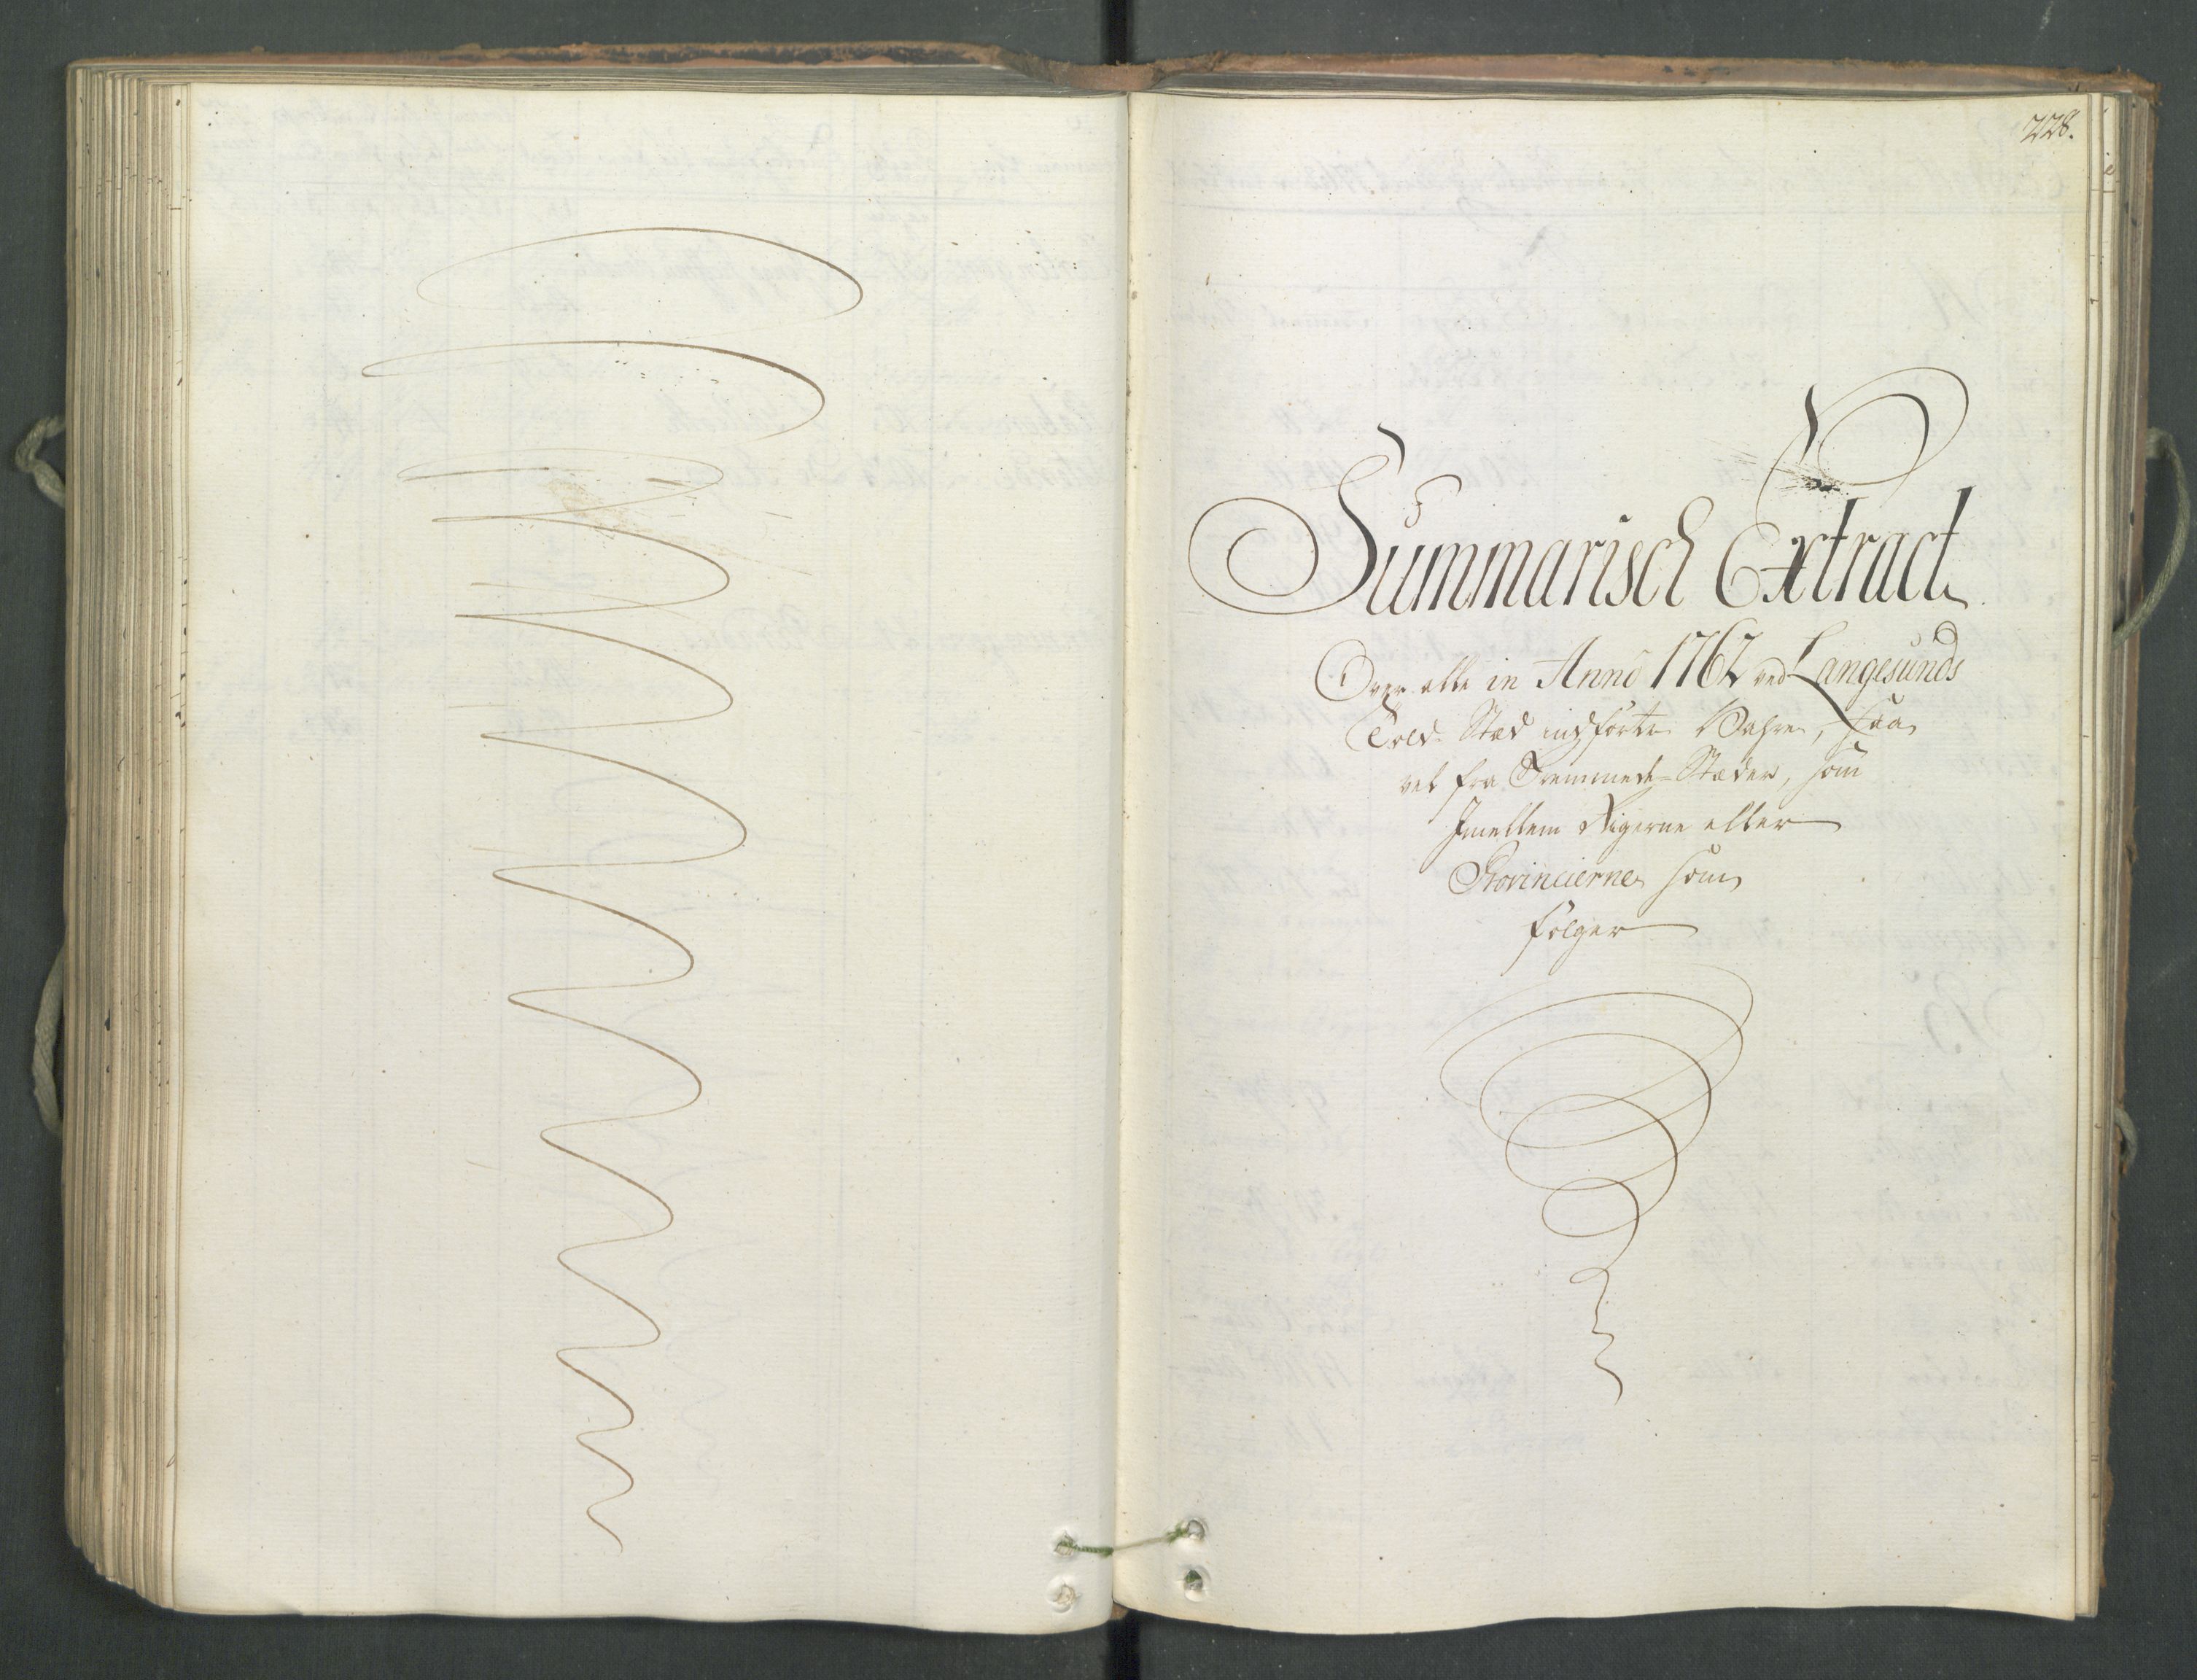 228.
Summarisch Extract
Over alle in Anno 1762 ved Langesunds
Told-Stæd indførte Vahre, saa
vel fra Fremmede-Stæder, som
Imellem Rigerne eller
Provincierne som
følger